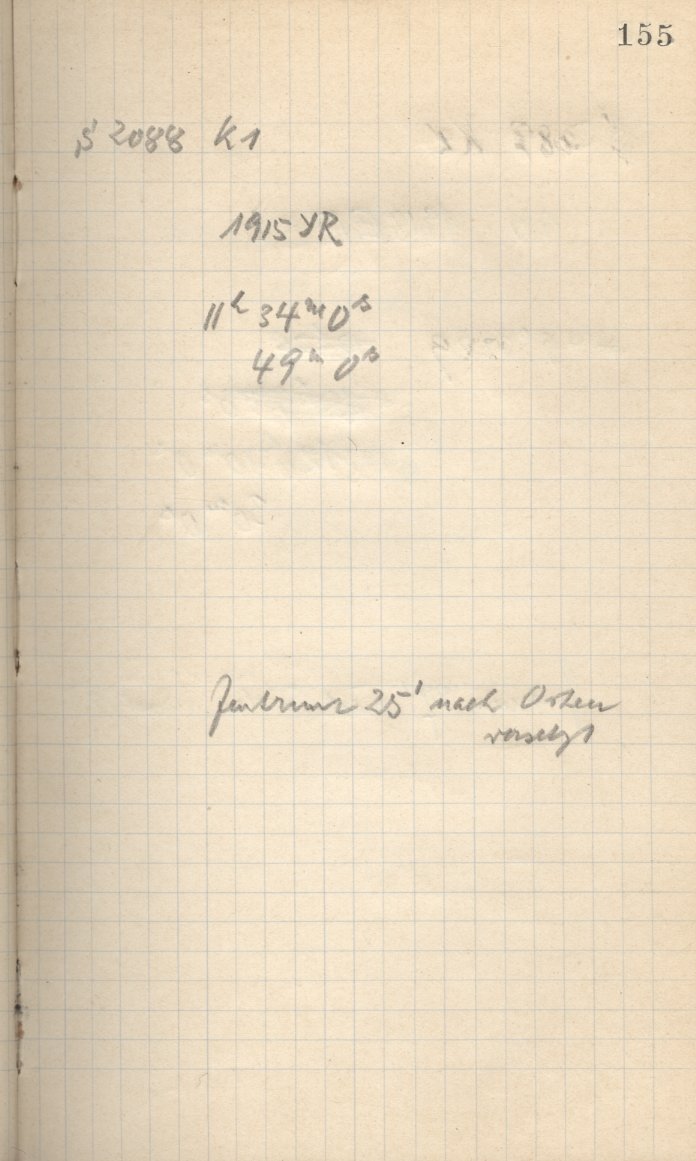 155
S 2088 K1
1915 YR
11ʰ 34ᵐ 0ˢ
49ᵐ 0ˢ
Zentrum 25' nach Osten
versetzt